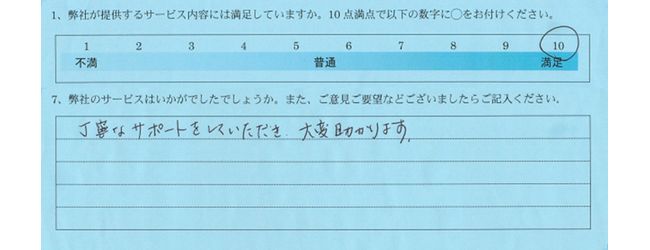 1、弊社が提供するサービス内容には満足していますか。10点満点で以下の数字に○をお付けください。
1 2 3 4 5 6 7 8 9 10
不満 普通 満足
7、弊社のサービスはいかがでしたでしょうか。また、ご意見ご要望などございましたらご記入ください。
丁寧なサポートをしていただき、大変助かります。